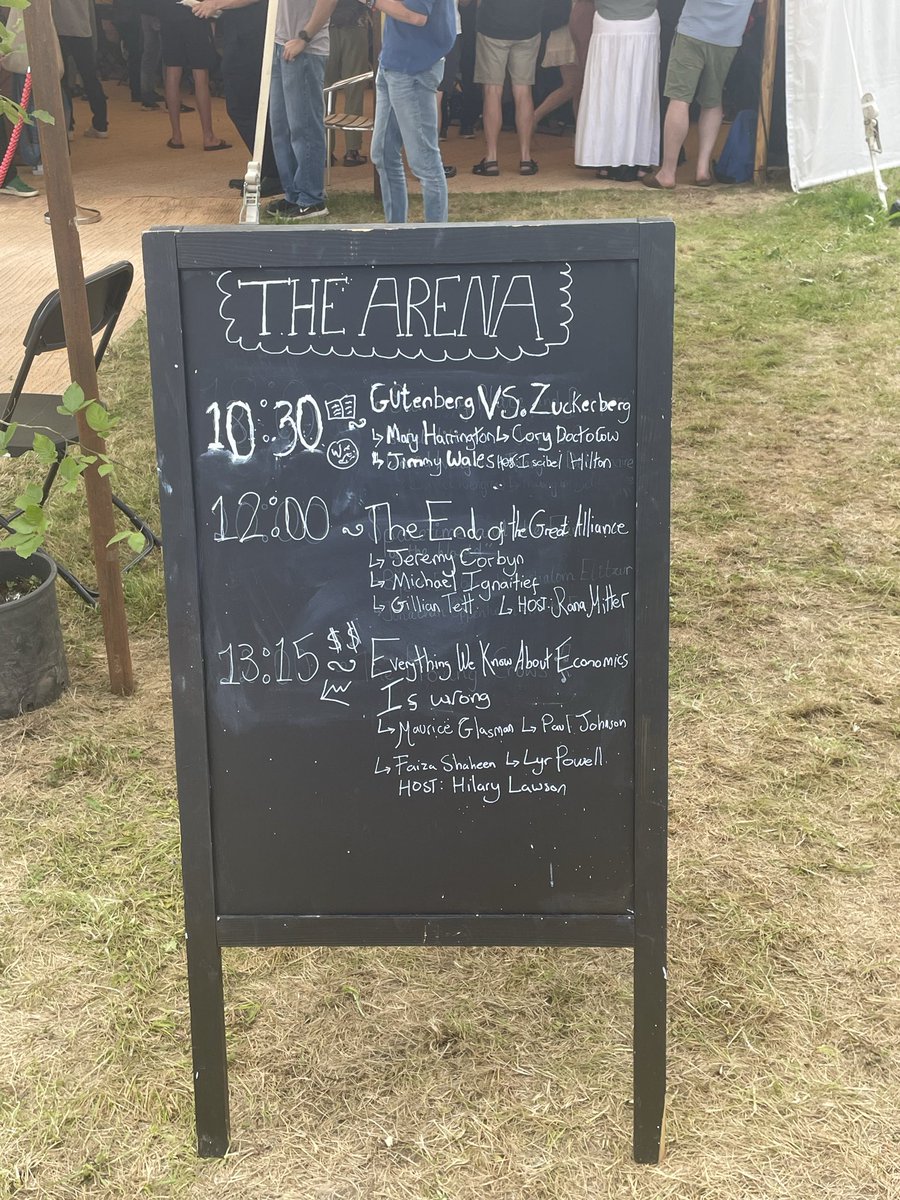 THE ARENA
10:30 Gutenberg VS. Zuckerberg
↳ Mary Harrington ↳ Cory Doctorow
↳ Jimmy Wales Host: Isabel Hilton
12:00 ~ The End of the Great Alliance
↳ Jeremy Corbyn
↳ Michael Ignaitief
↳ Gillian Tett ↳ HOST: Rana Mitter
13:15 $$ ~ Everything We Know About Economics
Is wrong
↳ Maurice Glasman ↳ Paul Johnson
↳ Faiza Shaheen ↳ Lyr Powell
HOST: Hilary Lawson